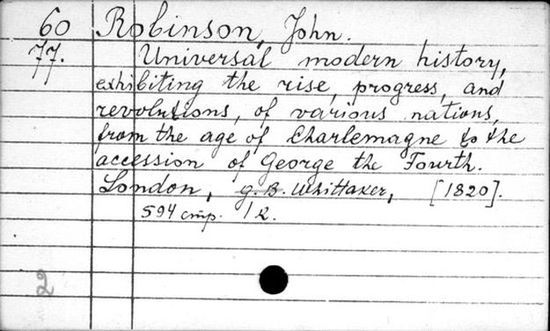 60 Robinson, John.
77. Universal modern history,
exhibiting the rise, progress, and
revolutions, of various nations,
from the age of Charlemagne to the
accession of George the Fourth.
London, G. B. Whittaker, [1820].
594 стр. 1 л.
2